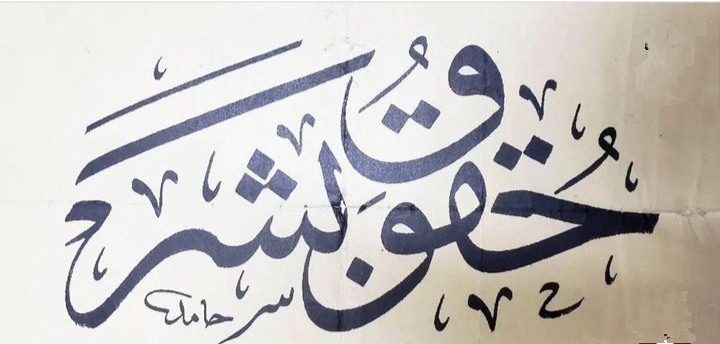 حُقُوق بشر
سرحامد